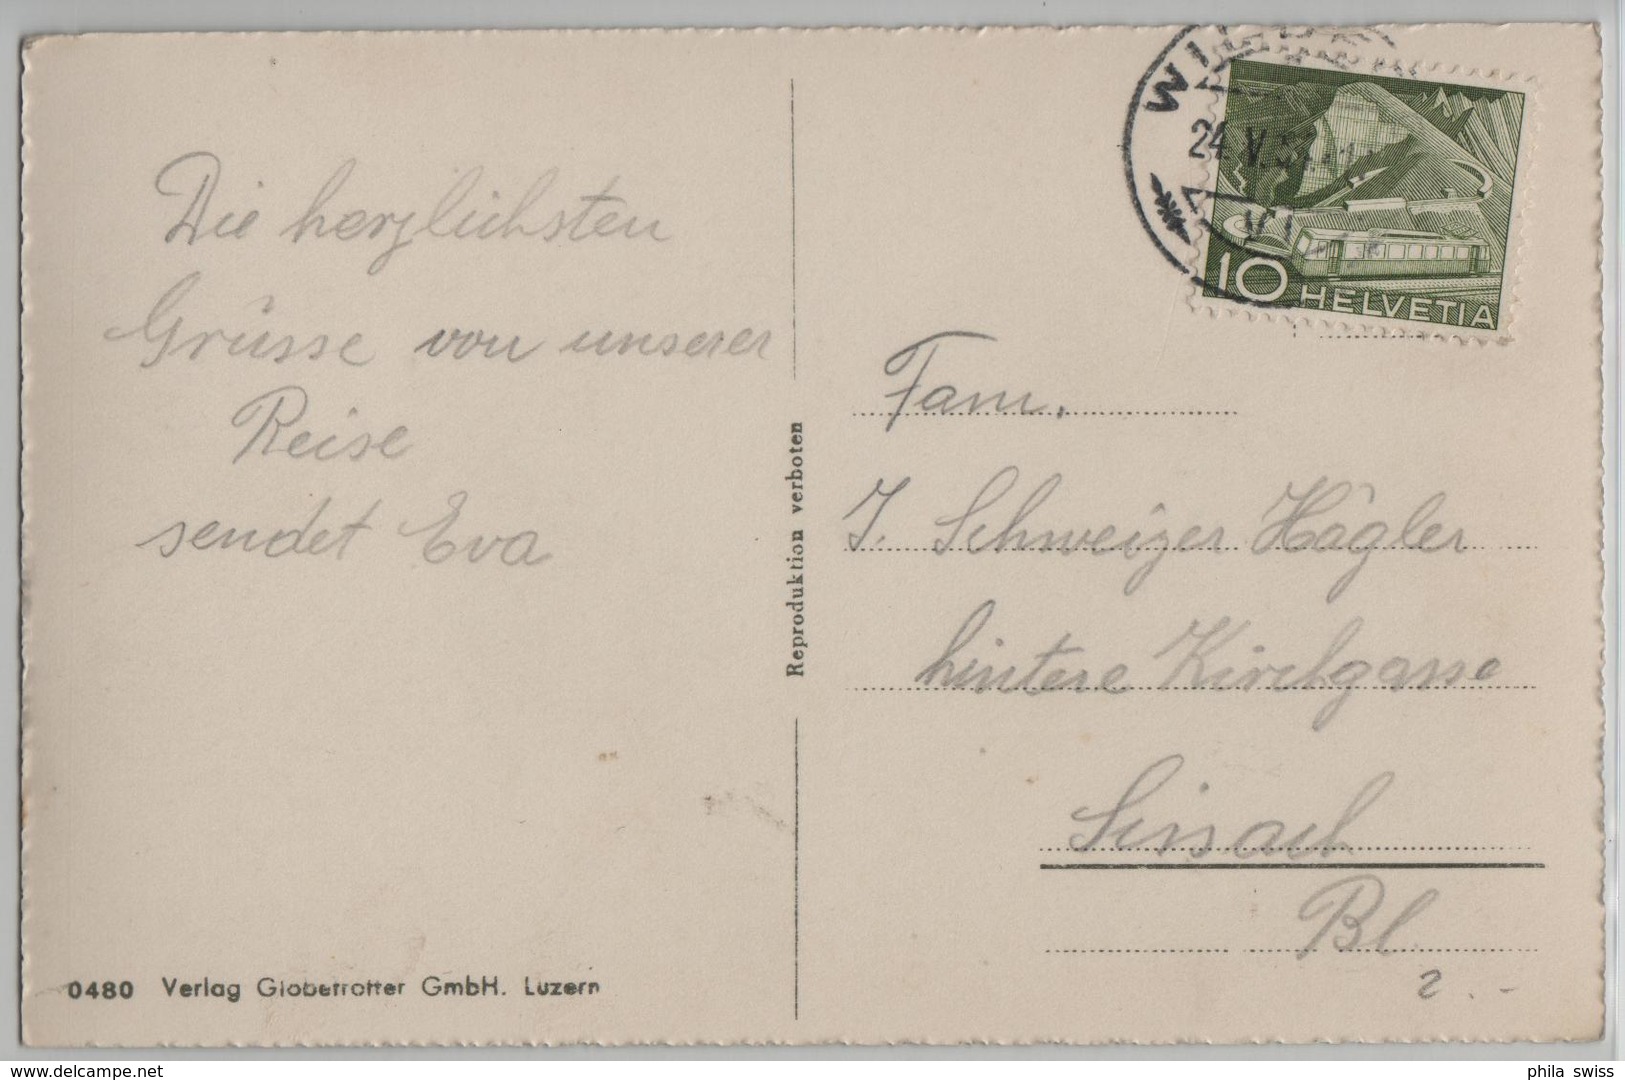 Die herzlichsten
Grüsse von unserer
Reise
sendet Eva
0480 Verlag Globetrotter GmbH. Luzern
Reproduktion verboten
24.V.
VI
10 HELVETIA
Fam.
J. Schweizer Hägler
hintere Kirchgasse
Sissach
Bl
2.-
phila swiss
delcampe.net